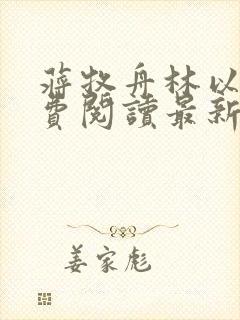 蔣牧舟林以
費閱讀最新
姜家彪